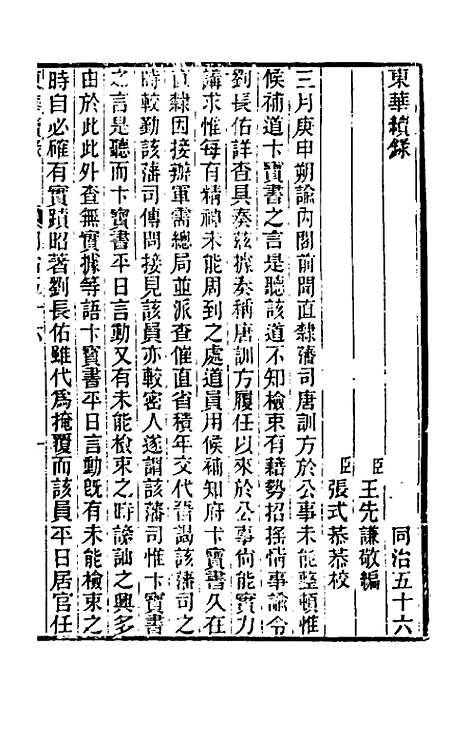 東華續錄 同治五十六
臣王先謙敬編
臣張式恭恭校
三月庚申朔諭內閣前聞直隸藩司唐訓方於公事未能整頓惟
候補道卞寶書之言是聽該道不知檢束有藉勢招搖情事諭令
劉長佑詳查具奏茲據奏稱唐訓方履任以來於公事尙能實力
講求惟每有精神未能周到之處道員用候補知府卞寶書久在
直隸因接辦軍需總局並派查催直省積年交代晉謁該藩司之
時較勤該藩司傳問接見該員亦較密人遂謂該藩司惟卞寶書
之言是聽而卞寶書平日言動又有未能檢束之時謗訕之興多
由於此此外查無實據等語卞寶書平日言動旣有未能檢束之
時自必確有實蹟昭著劉長佑雖代爲掩覆而該員平日居官任
東華續錄 同治五十六 一